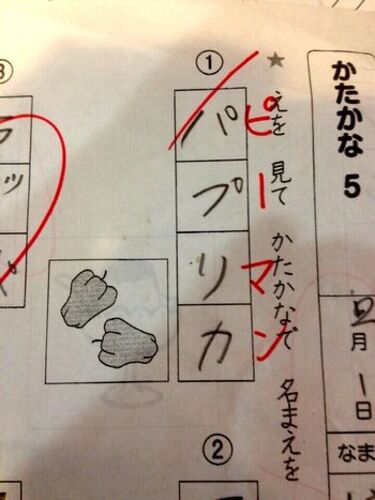 かたかな 5
月 1日
なま
★ えを 見て かたかなで 名まえを
ピーマン
①
パプリカ
②
③
ッ